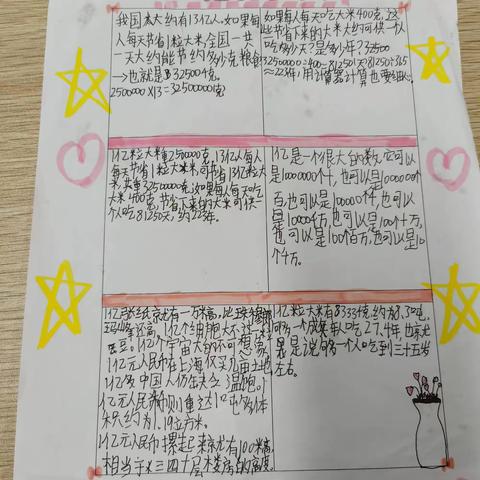 我国本大约有13亿人.如果每
人每天节省1粒大米,全国一共
一天大约能节约多少克粮食
→也就是32500千克.
2500000×13=32500000克
如果每人每天吃大米400克,这
些节省下来的大米大约可供一个人
吃多少天?是多少年?32500
32500000÷400=81250(天)81250÷365
≈223年,用计算器计算也要细心.
1亿粒大米重2500000克,13亿人每人
每天节省1粒大米,可节省13亿粒大
米,共重32500000克,如果每人每天吃
大米400克,节省下来的大米可供一
个人吃81250天,约223年.
亿是一个很大的数,它可以
是100000000个1,也可以是10000000个
百,也可以是10000个万,也可以
也可以是100个百万,也可以是10
个千万.
1亿张纸京尤有一万米高,比珠穆朗
玛峰还高.
豆.1亿个宇宙大的不可想象.
1亿元人民币在上海仅买几亩土地
1亿多中国人仍年失之温饱.
积约为1.19立方米.
1亿元人民币摞起来就有100米高,
相当于三四十层楼房的高度.
1亿粒大米有8333千克,约为8.3吨,
可够一个成年人吃27.4年,也就
是说,够一个人吃到三十五岁
左右.